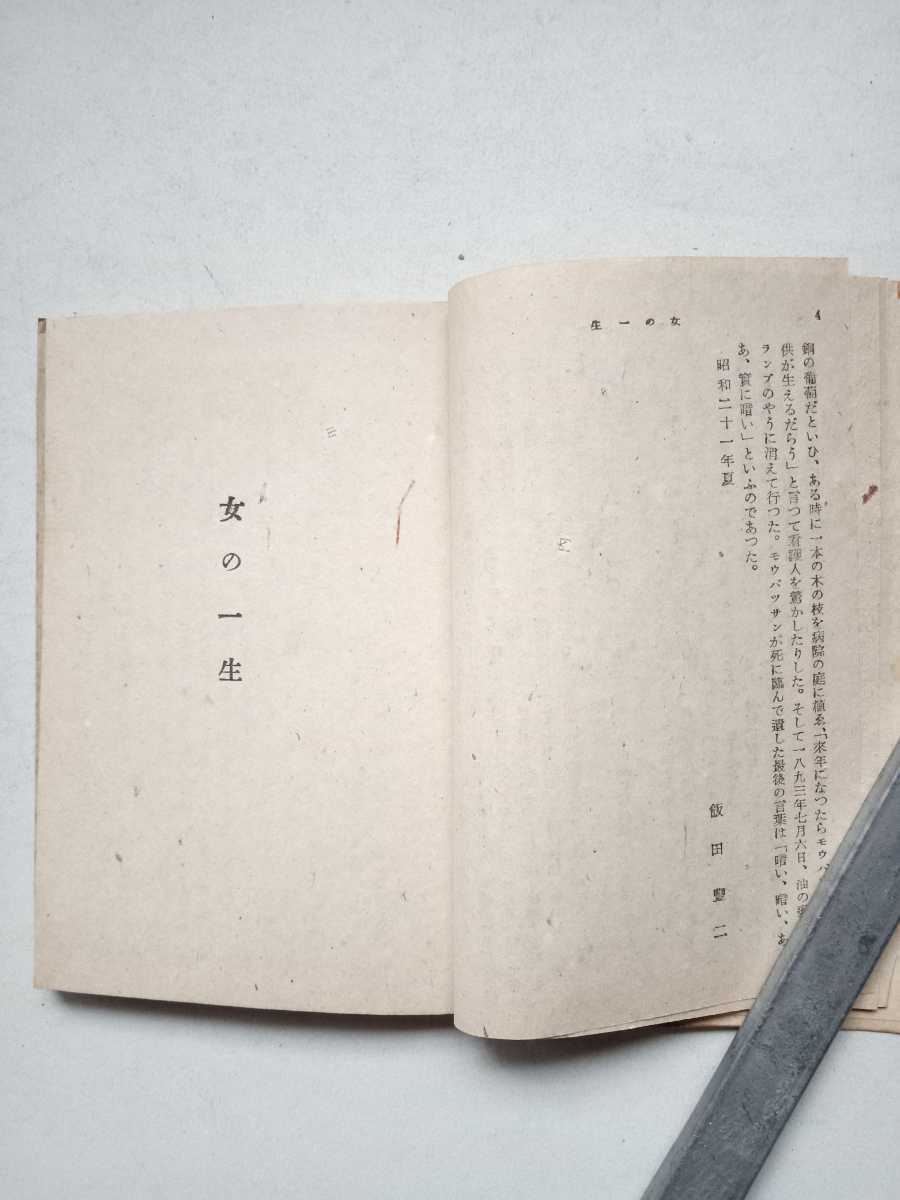 4
女の一生
銅の葡萄だといひ、ある時に一本の木の枝を病院の庭に植ゑ、「來年になつたらモウパ
供が生えるだらう」と言つて看護人を驚かしたりした。そして一八九三年七月六日、油の
ランプのやうに消えて行つた。モウパツサンが死に臨んで遺した最後の言葉は「暗い、暗い、あ
あ、實に暗い」といふのであつた。
昭和二十一年夏
飯田豐二
女の一生